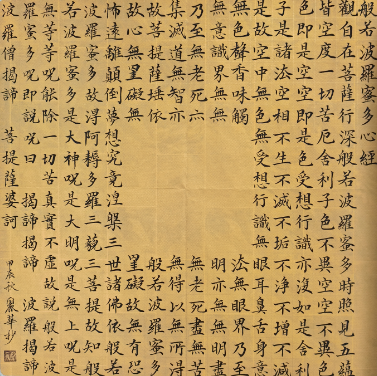 般若波羅蜜多心經
觀自在菩薩行深般若波羅蜜多時照見五蘊
皆空度一切苦厄舍利子色不異空空不異色
色即是空空即是色受想行識亦復如是舍利
子是諸法空相不生不滅不垢不淨不增不減
是故空中無色無受想行識無眼耳鼻舌身意
無色聲香味觸 法無眼界乃至
無意識界無無 明亦無無明盡
乃至無老死亦 無老死盡無苦
集滅道無智亦 無得以無所得
故菩提薩埵依 般若波羅蜜多
故心無罣礙無 罣礙故無有恐
怖遠離顛倒夢想究竟涅槃三世諸佛依般若
波羅蜜多故得阿耨多羅三藐三菩提故知般
若波羅蜜多是大神呪是大明呪是無上呪是
無等等呪能除一切苦真實不虛故說般若波
羅蜜多呪即說呪曰 揭諦揭諦 波羅揭諦
波羅僧揭諦 菩提薩婆訶
甲辰秋